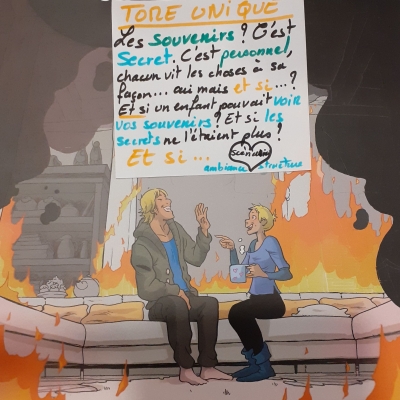 TORE UNIQUE
Les SOUVENIRS ? C'est
Secret. C'est personnel,
chacun vit les choses à sa
façon... oui mais et si...?
Et si un enfant pouvait voir
vos souvenirs ? Et si les
secrets ne l'étaient plus ?
Et si ...
Scénario
ambiance structure